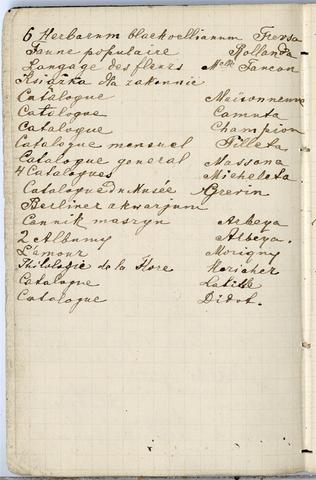 6 Herbarum blackwellianum Trevsa
Faune populaire Rollanda
Langage des fleurs Melle Fancon
Książka dla zakonnic
Catalogue Maisonneuve
Catalogue Camuta
Catalogue Champion
Catalogue mensuel Filleta
Catalogue general Massona
4 Catalogues Micheleta
Catalogue du Musée Grevin
Berliner akwarjum
Cennik maszyn Arbeya
2 Albumy Arbeya.
L'amour Morigny
Philologie de la Flore
Catalogue
Catalogue Didot.